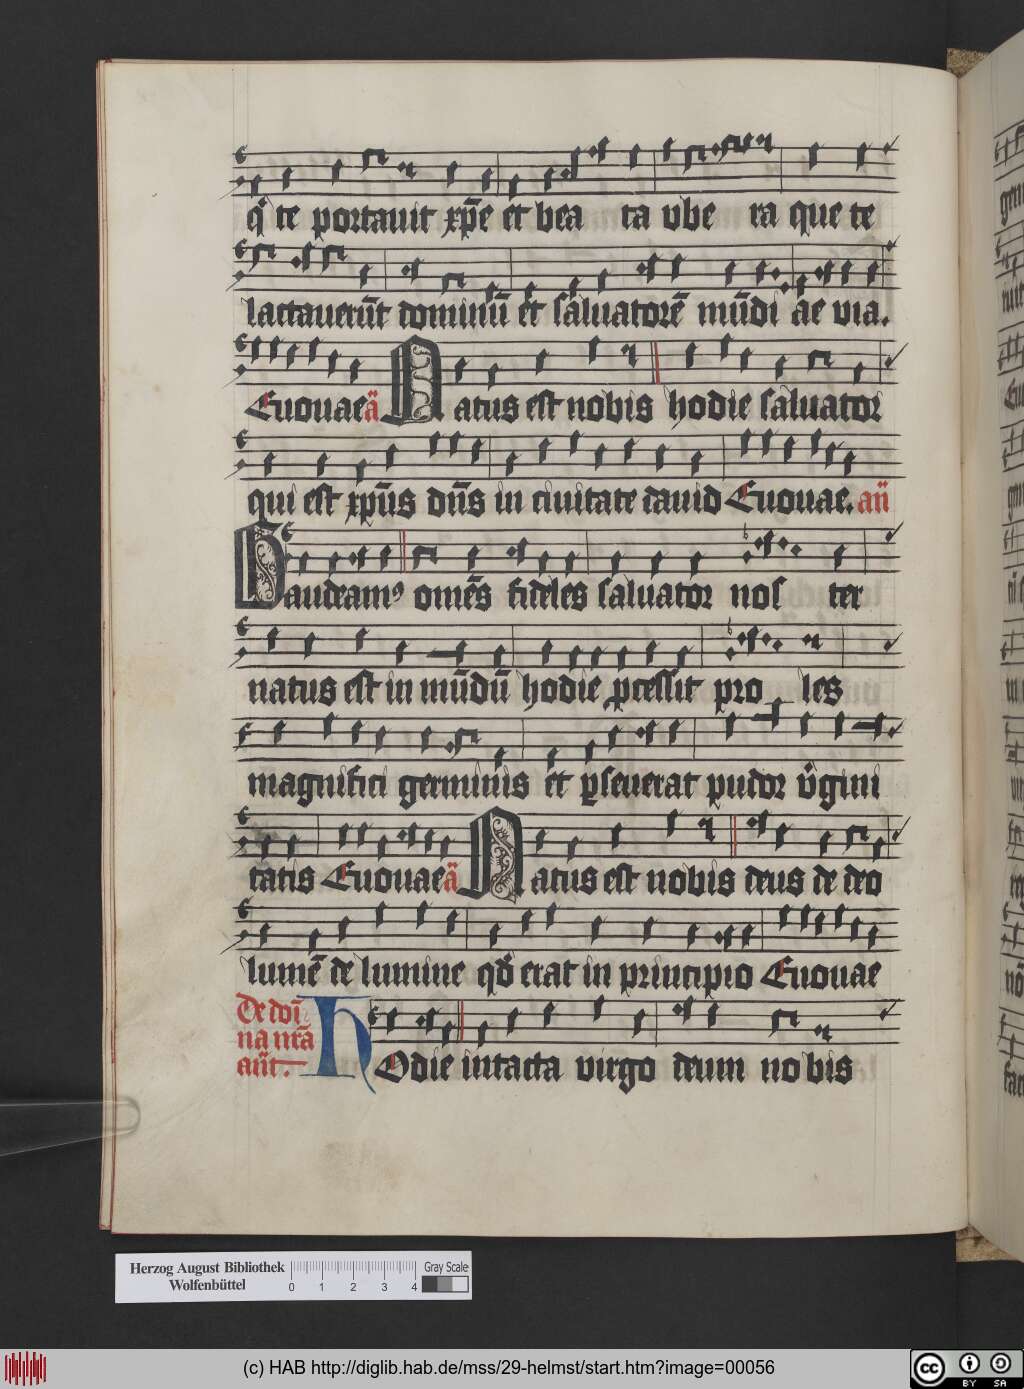 q̄ te portauit xp̄e et bea ta vbe ra que te
lactauerūt dominū et saluatorē mūdi ae via.
Euouae ā Natus est nobis hodie saluator
qui est xp̄us dn̄s in ciuitate dauid Euouae. an̄
Gaudeamꝰ om̄es fideles saluator nos ter
natus est in mūdū hodie ꝓcessit pro les
magnifici germinis et ꝑseuerat pudor v̄gini
tatis Euouae ā Natus est nobis deus de deo
lumē de lumine qd̄ erat in principio Euouae
De doī
na nr̄a
an̄t.
HOdie intacta virgo deum nobis
Herzog August Bibliothek
Wolfenbüttel
0 1 2 3 4
Gray Scale
(c) HAB http://diglib.hab.de/mss/29-helmst/start.htm?image=00056
cc BY SA